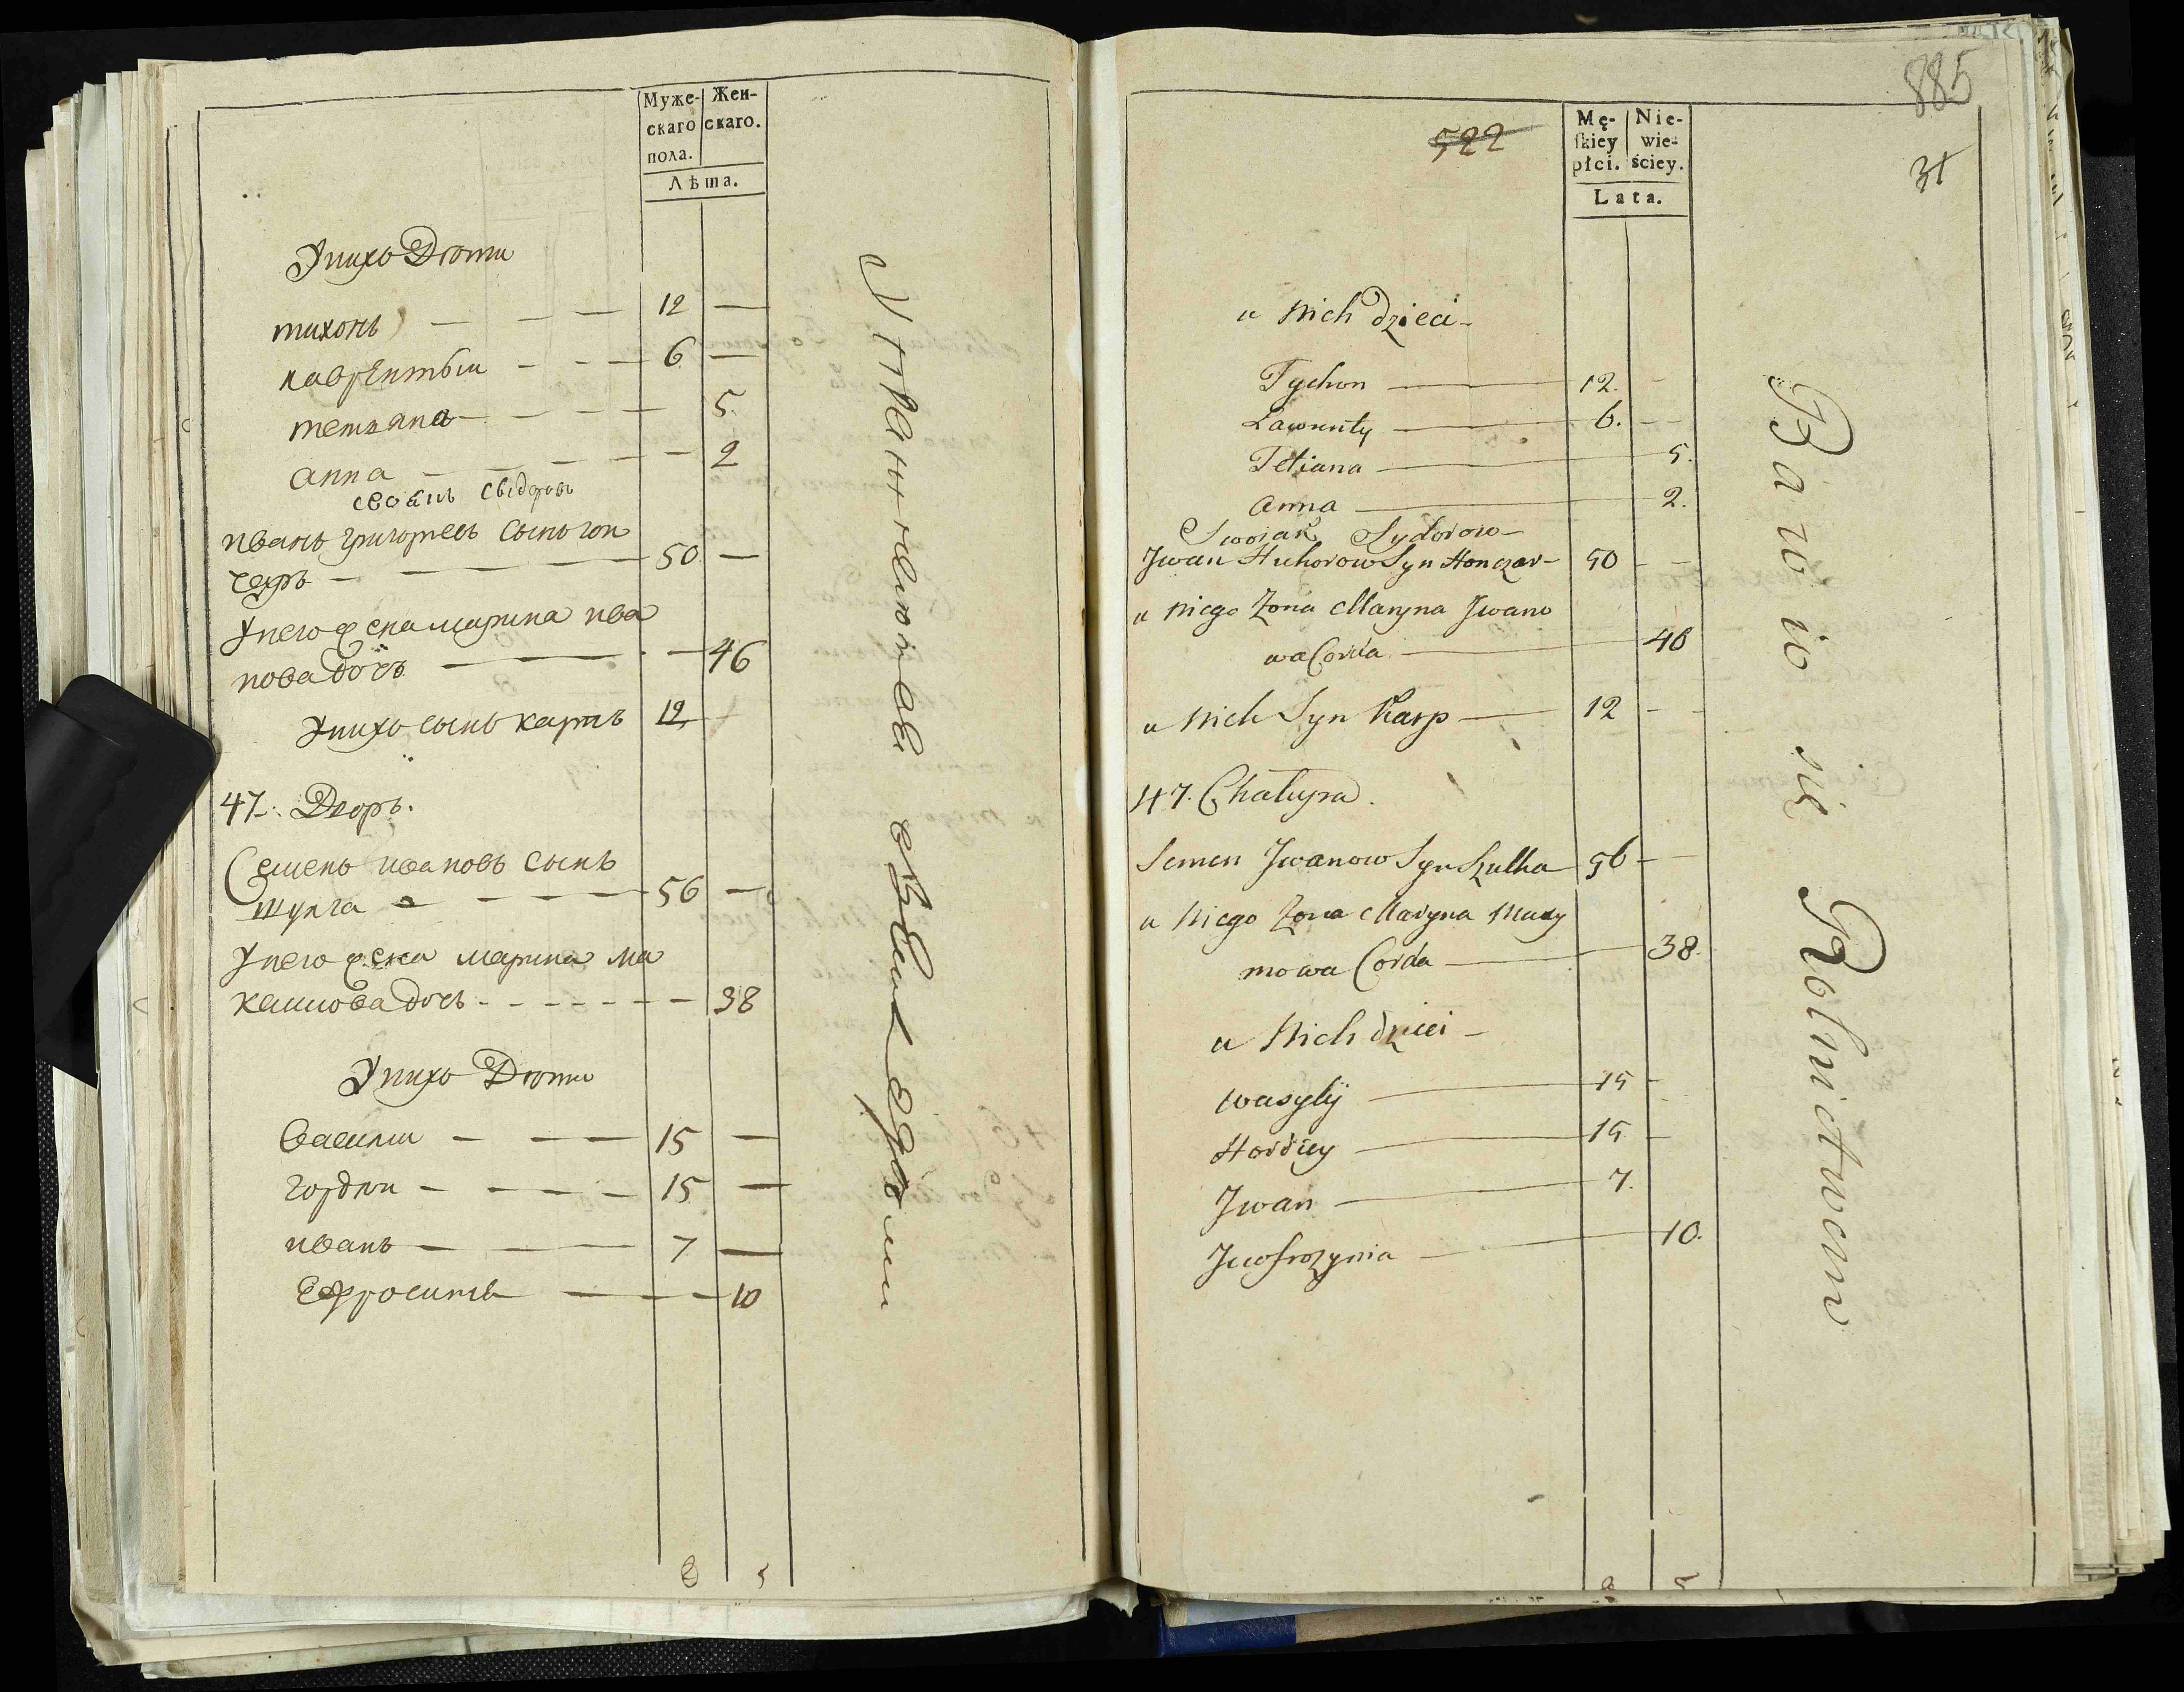 Муже- Жен-
скаго скаго.
пола.
Лѣта.
У нихъ Дѣти
тихонъ 12 —
лаврентѣи 6 —
тетяна 5
анна 2
своякъ Сидоровъ
иванъ григорѣевъ сынъ гон
чаръ 50 —
У него жена марина ива
нова дочь 46
У нихъ сынъ карпъ 12
47. Дворъ.
Семенъ ивановъ сынъ
шулга 56 —
У него жена марина ма
ксимова дочь 38
У нихъ Дѣти
Василии 15 —
гордѣи 15 —
иванъ 7 —
Ефросиня 10
8 5
885
31
522
Mę- Nie-
skiey wie-
płci. ściey.
Lata.
u Nich dzieci
Tychon 12. -
Ławrenty 6. -
Tetiana 5.
Anna 2.
Swoiak Sydorow
Jwan Huhorow Syn Honczar 50 -
u Niego Żona Maryna Jwano
wa Corka 46
u Nich Syn Karp 12 -
47. Chałupa.
Semen Jwanow Syn Szulha 56 -
u Niego Żona Maryna Maxy
mowa Corka 38.
u Nich dzieci
Wasyly 15 -
Hordiey 15 -
Jwan 7.
Jewfrozynia 10.
Bawio się Rolnictwem